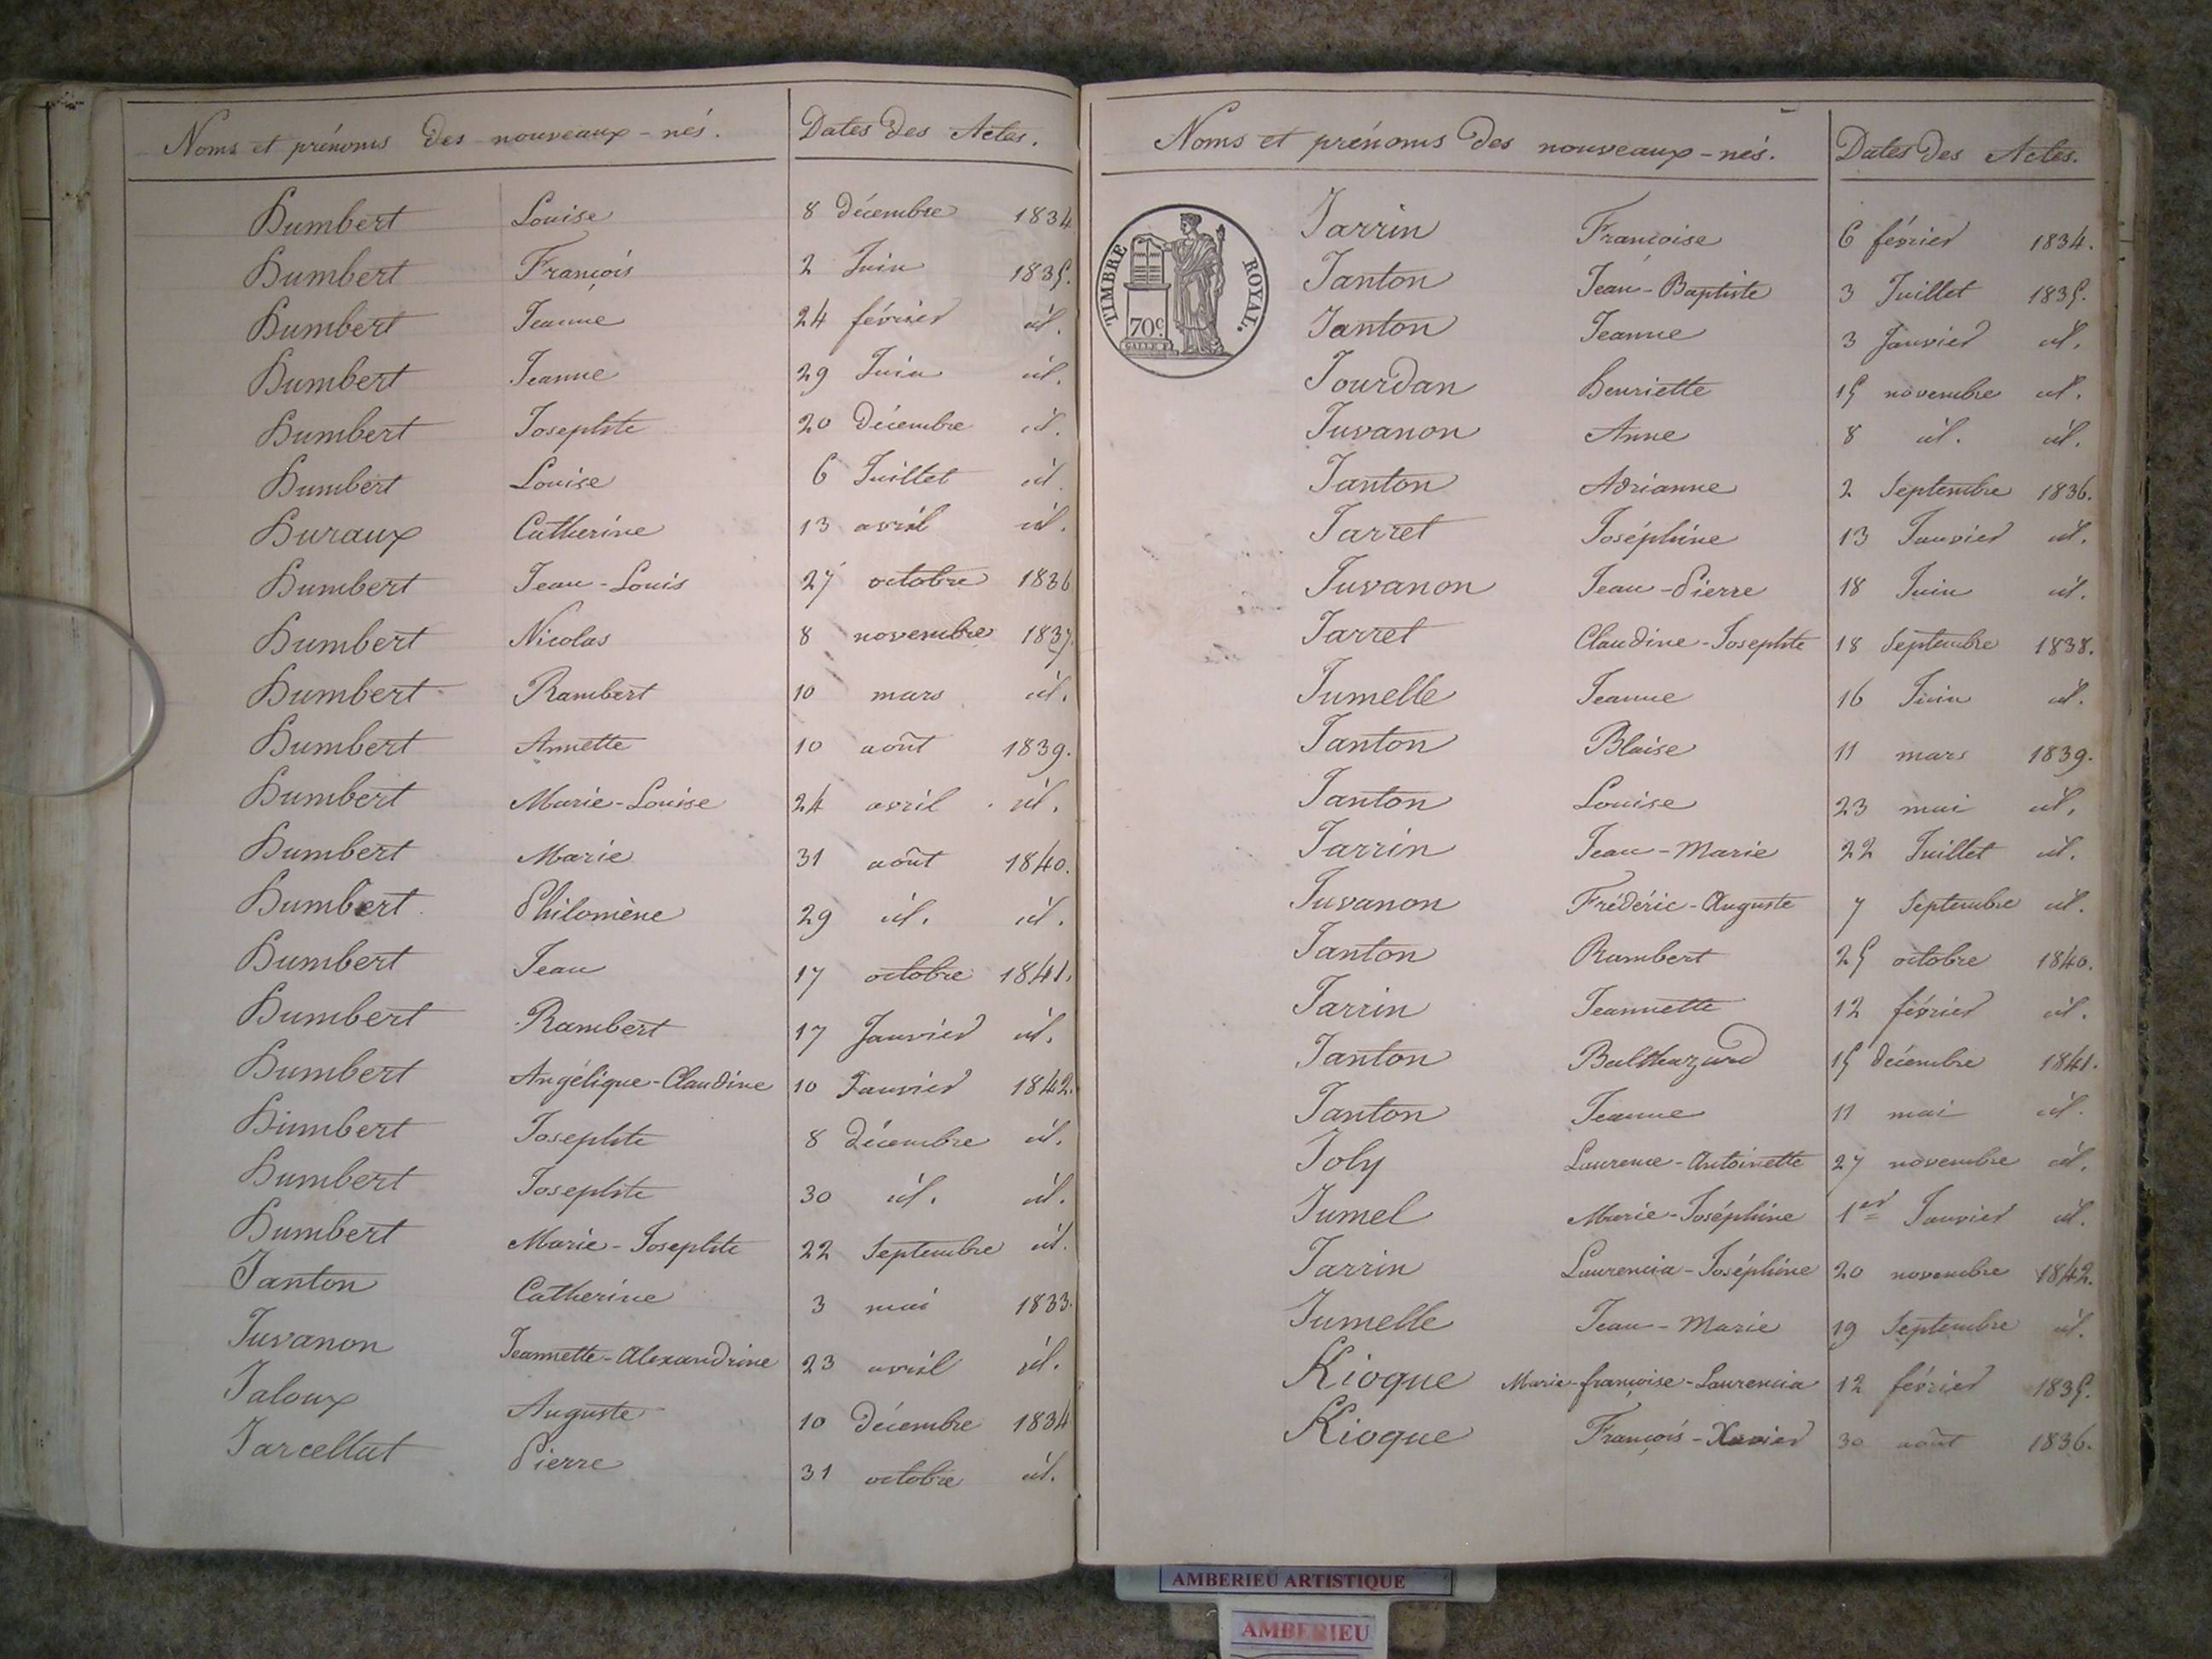 Noms et prénoms des nouveaux-nés. Dates des Actes.
Humbert Louise 8 décembre 1834
Humbert François 2 Juin 1835.
Humbert Jeanne 24 février id.
Humbert Jeanne 29 Juin id.
Humbert Josephte 20 Décembre id.
Humbert Louise 6 Juillet id
Huraux Catherine 13 avril id.
Humbert Jean-Louis 27 octobre 1836
Humbert Nicolas 8 novembre 1837.
Humbert Rambert 10 mars id.
Humbert Annette 10 août 1839.
Humbert Marie-Louise 24 avril id.
Humbert Marie 31 août 1840.
Humbert Philomène 29 id. id.
Humbert Jean 17 octobre 1841.
Humbert Rambert 17 Janvier id.
Humbert Angélique-Claudine 10 Janvier 1842.
Humbert Josephte 8 décembre id.
Humbert Josephte 30 id. id.
Humbert Marie-Josephte 22 Septembre id.
Janton Catherine 3 mai 1833.
Juvanon Jeannette-Alexandrine 23 avril id.
Jaloux Auguste 10 Décembre 1834
Jarcellat Pierre 31 octobre id.
Noms et prénoms des nouveaux-nés. Dates des Actes.
TIMBRE ROYAL.
70c
Jarrin Françoise 6 février 1834.
Janton Jean-Baptiste 3 Juillet 1835.
Janton Jeanne 3 Janvier id.
Jourdan Henriette 15 novembre id.
Juvanon Anne 8 id. id.
Janton Adrianne 2 Septembre 1836.
Jarret Joséphine 13 Janvier id.
Juvanon Jean-Pierre 18 Juin id.
Jarret Claudine-Josephte 18 Septembre 1838.
Jumelle Jeanne 16 Juin id.
Janton Blaise 11 mars 1839.
Janton Louise 23 mai id.
Jarrin Jean-Marie 22 Juillet id.
Juvanon Frédéric-Auguste 7 Septembre id.
Janton Rambert 25 octobre 1840.
Jarrin Jeannette 12 février id.
Janton Balthazard 15 décembre 1841.
Janton Jeanne 11 mai id.
Joly Laurence-Antoinette 27 novembre id.
Jumel Marie-Joséphine 1er Janvier id.
Jarrin Laurencia-Joséphine 20 novembre 1842.
Jumelle Jean-Marie 19 Septembre id.
Kioque Marie-françoise-Laurencia 12 février 1835.
Kioque François-Xavier 30 août 1836.
AMBERIEU ARTISTIQUE
AMBERIEU